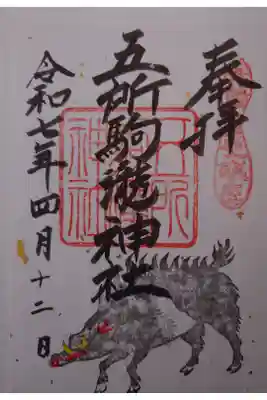 奉拝
五所駒瀧神社
令和七年四月十二日